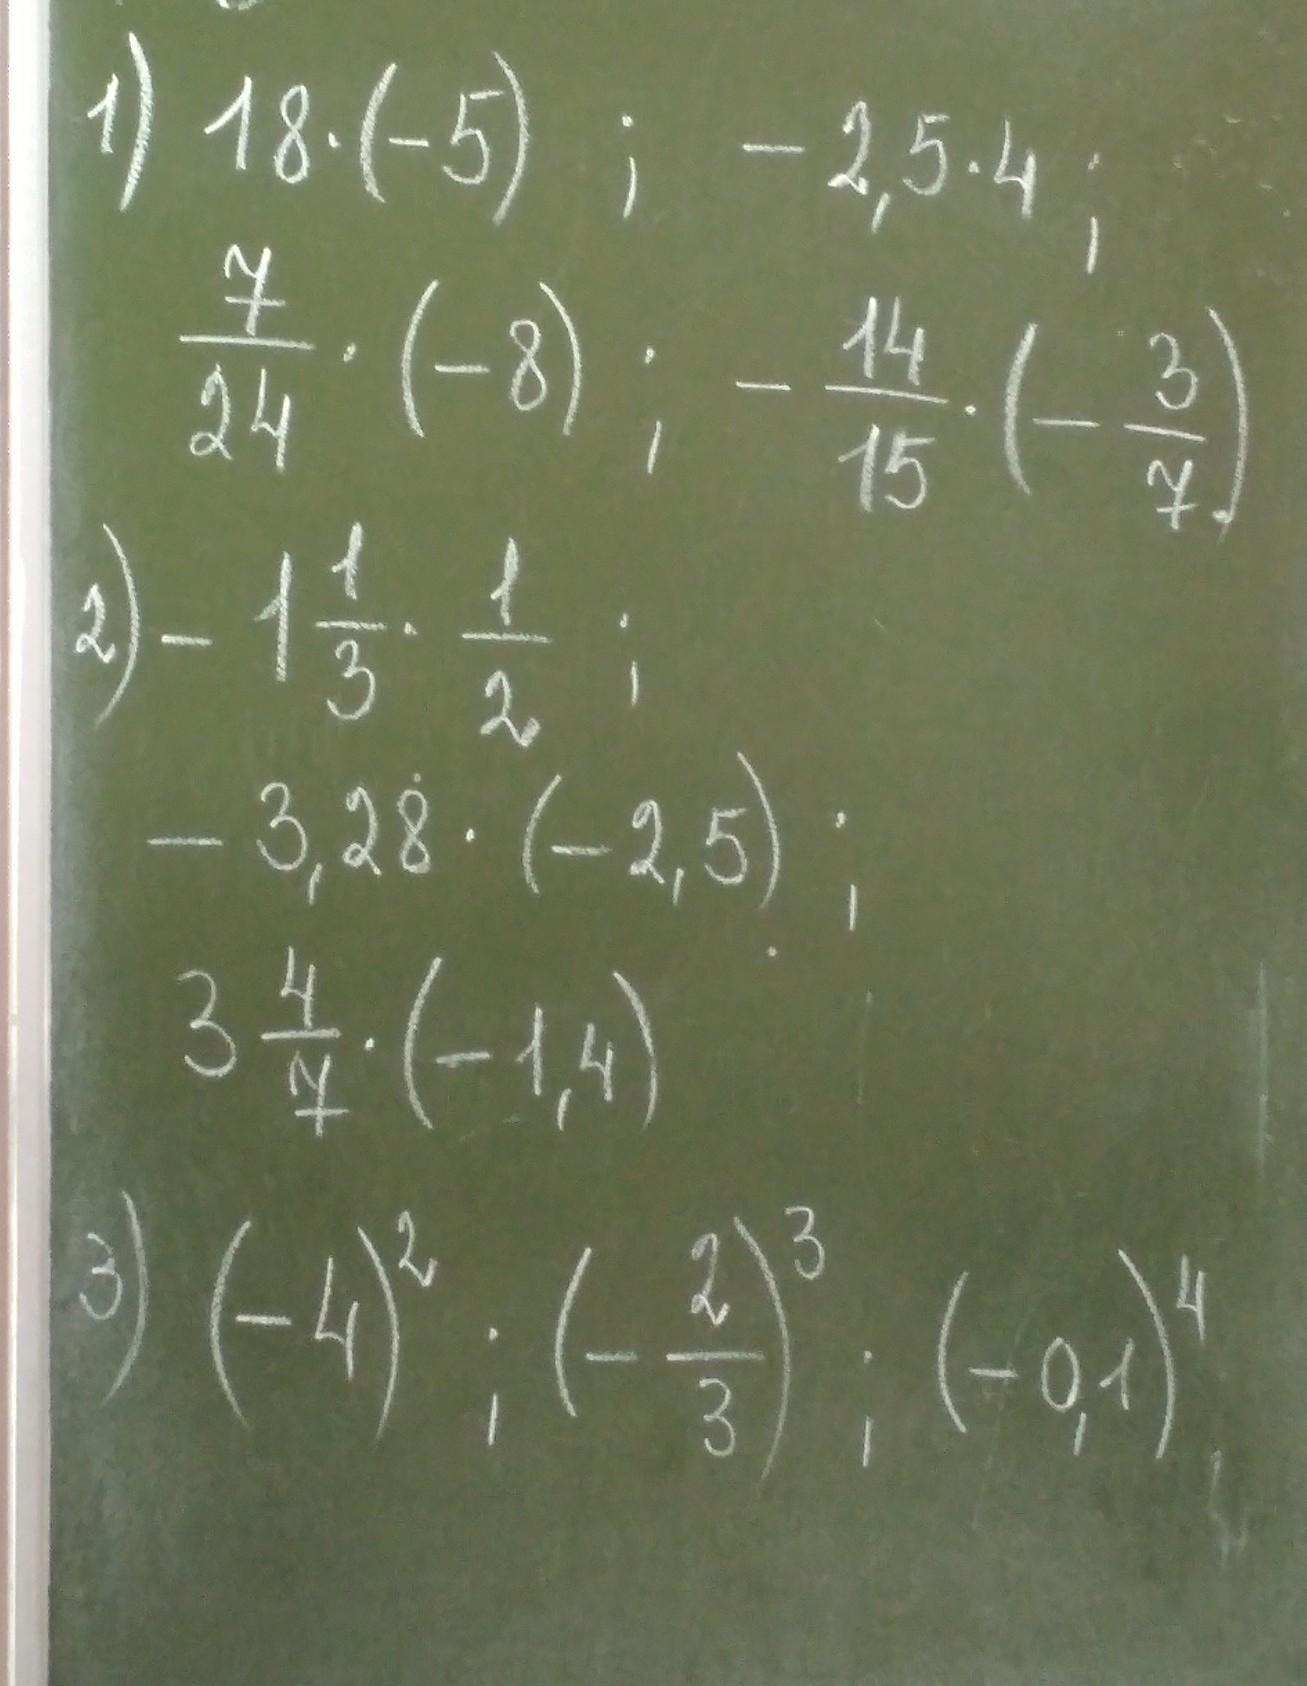 1) 18·(-5) ; -2,5·4 ;
7/24 · (-8) ; -14/15 · (-3/7)
2) -1 1/3 · 1/2 ;
-3,28 · (-2,5) ;
3 4/7 · (-1,4)
3) (-4)² ; (-2/3)³ ; (-0,1)⁴